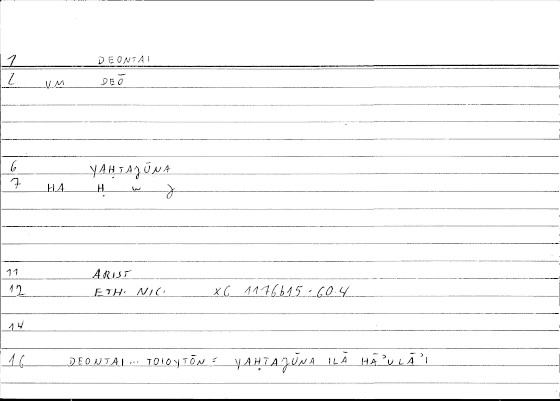 1 DEONTAI
2 VM DEŌ
6 YAḤTAJŪNA
7 HA Ḥ w J
11 ARIST
12 ETH. NIC. X6 1176b15 - 60.4
14
16 DEONTAI ... TOIOYTŌN = YAḤTAJŪNA ILĀ HĀʾULĀʾI